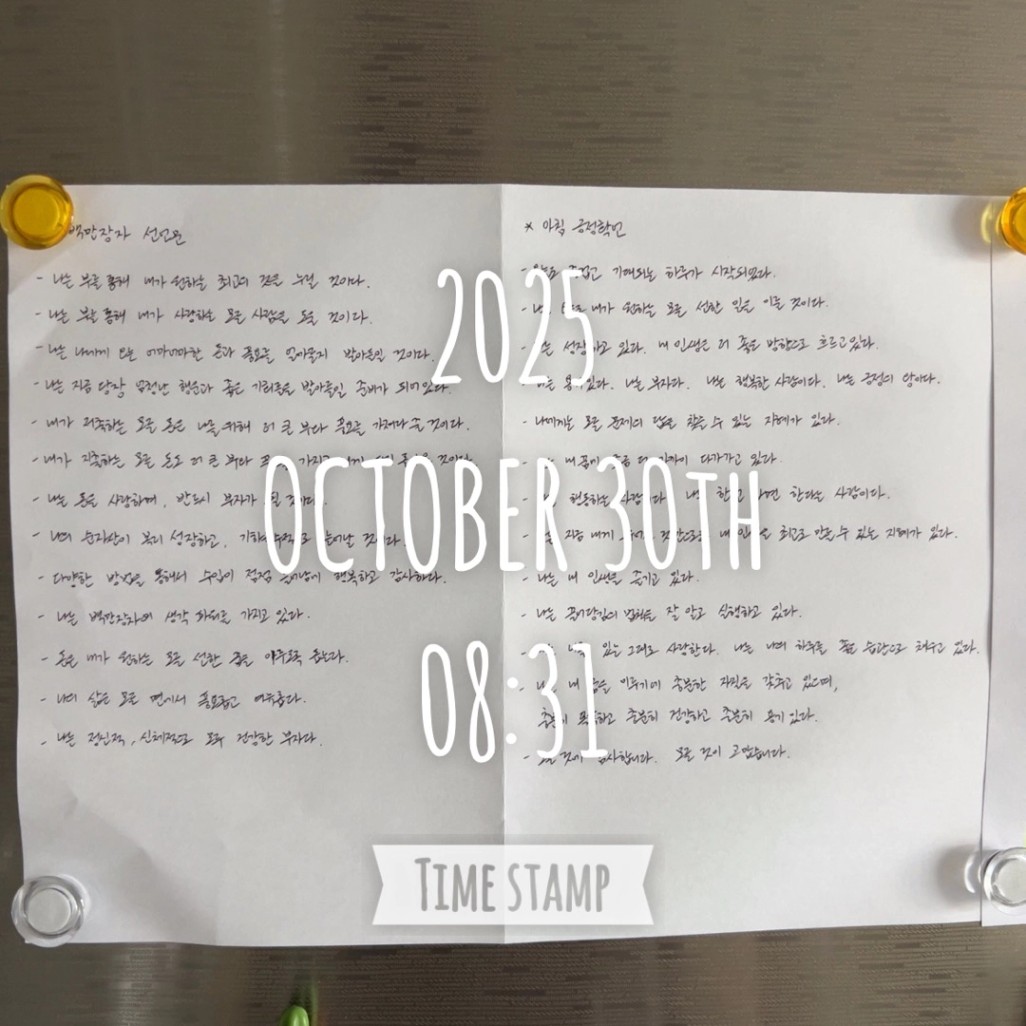 백만장자 선언문
- 나는 부를 통해 내가 원하는 최고의 것을 누릴 것이다.
- 나는 부를 통해 내가 사랑하는 모든 사람을 도울 것이다.
- 나는 나에게 오는 어마어마한 돈과 풍요를 받아들일 것이다.
- 나는 지금 당장 엄청난 행운과 좋은 기회들을 받아들일 준비가 되어있다.
- 내가 저축하는 모든 돈은 나를 위해 더 큰 부와 풍요를 가져다 줄 것이다.
- 내가 지출하는 모든 돈도 더 큰 부와
- 나는 돈을 사랑하며, 반드시 부자가 될 것이다.
- 나의 순자산이 복리 성장하고, 늘어날 것이다.
- 다양한 방법을 통해서 수입이 점점 행복하고 감사하다.
- 나는 백만장자의 생각 파워를 가지고 있다.
- 돈은 내가 원하는 모든 선한 꿈을 이루도록 돕는다.
- 나의 삶은 모든 면에서 풍요롭고 여유롭다.
- 나는 정신적, 신체적으로 모두 건강한 부자다.
* 아침 긍정확언
즐겁고 기대되는 하루가 시작되었다.
- 나는 내가 원하는 모든 선한 일을 이룰 것이다.
- 나는 성장하고 있다. 내 인생은 더 좋은 방향으로 흐르고 있다.
용기있다. 나는 부자다. 나는 행복한 사람이다. 나는 긍정의 왕이다.
- 나에게는 모든 문제의 답을 찾을 수 있는 지혜가 있다.
내 꿈에 다가가고 있다.
행동하는 사람이다. 나는 한다고 하면 한다는 사람이다.
지금 내게 최고로 만들 수 있는 지혜가 있다.
- 나는 내 인생을 즐기고 있다.
- 나는 끌어당김의 법칙을 잘 알고 실행하고 있다.
있는 그대로 사랑한다. 나는 나의 하루를 좋은 습관으로 채우고 있다.
- 나는 내 꿈을 이루기에 충분한 자질을 갖추고 있으며,
충분히 똑똑하고 충분히 건강하고 충분히 용기 있다.
- 모든 것에 감사합니다. 모든 것이 고맙습니다.
2025
OCTOBER 30TH
08:31
TIME STAMP